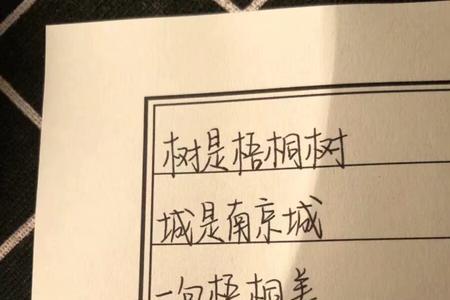 树是梧桐树
城是南京城
一句梧桐美